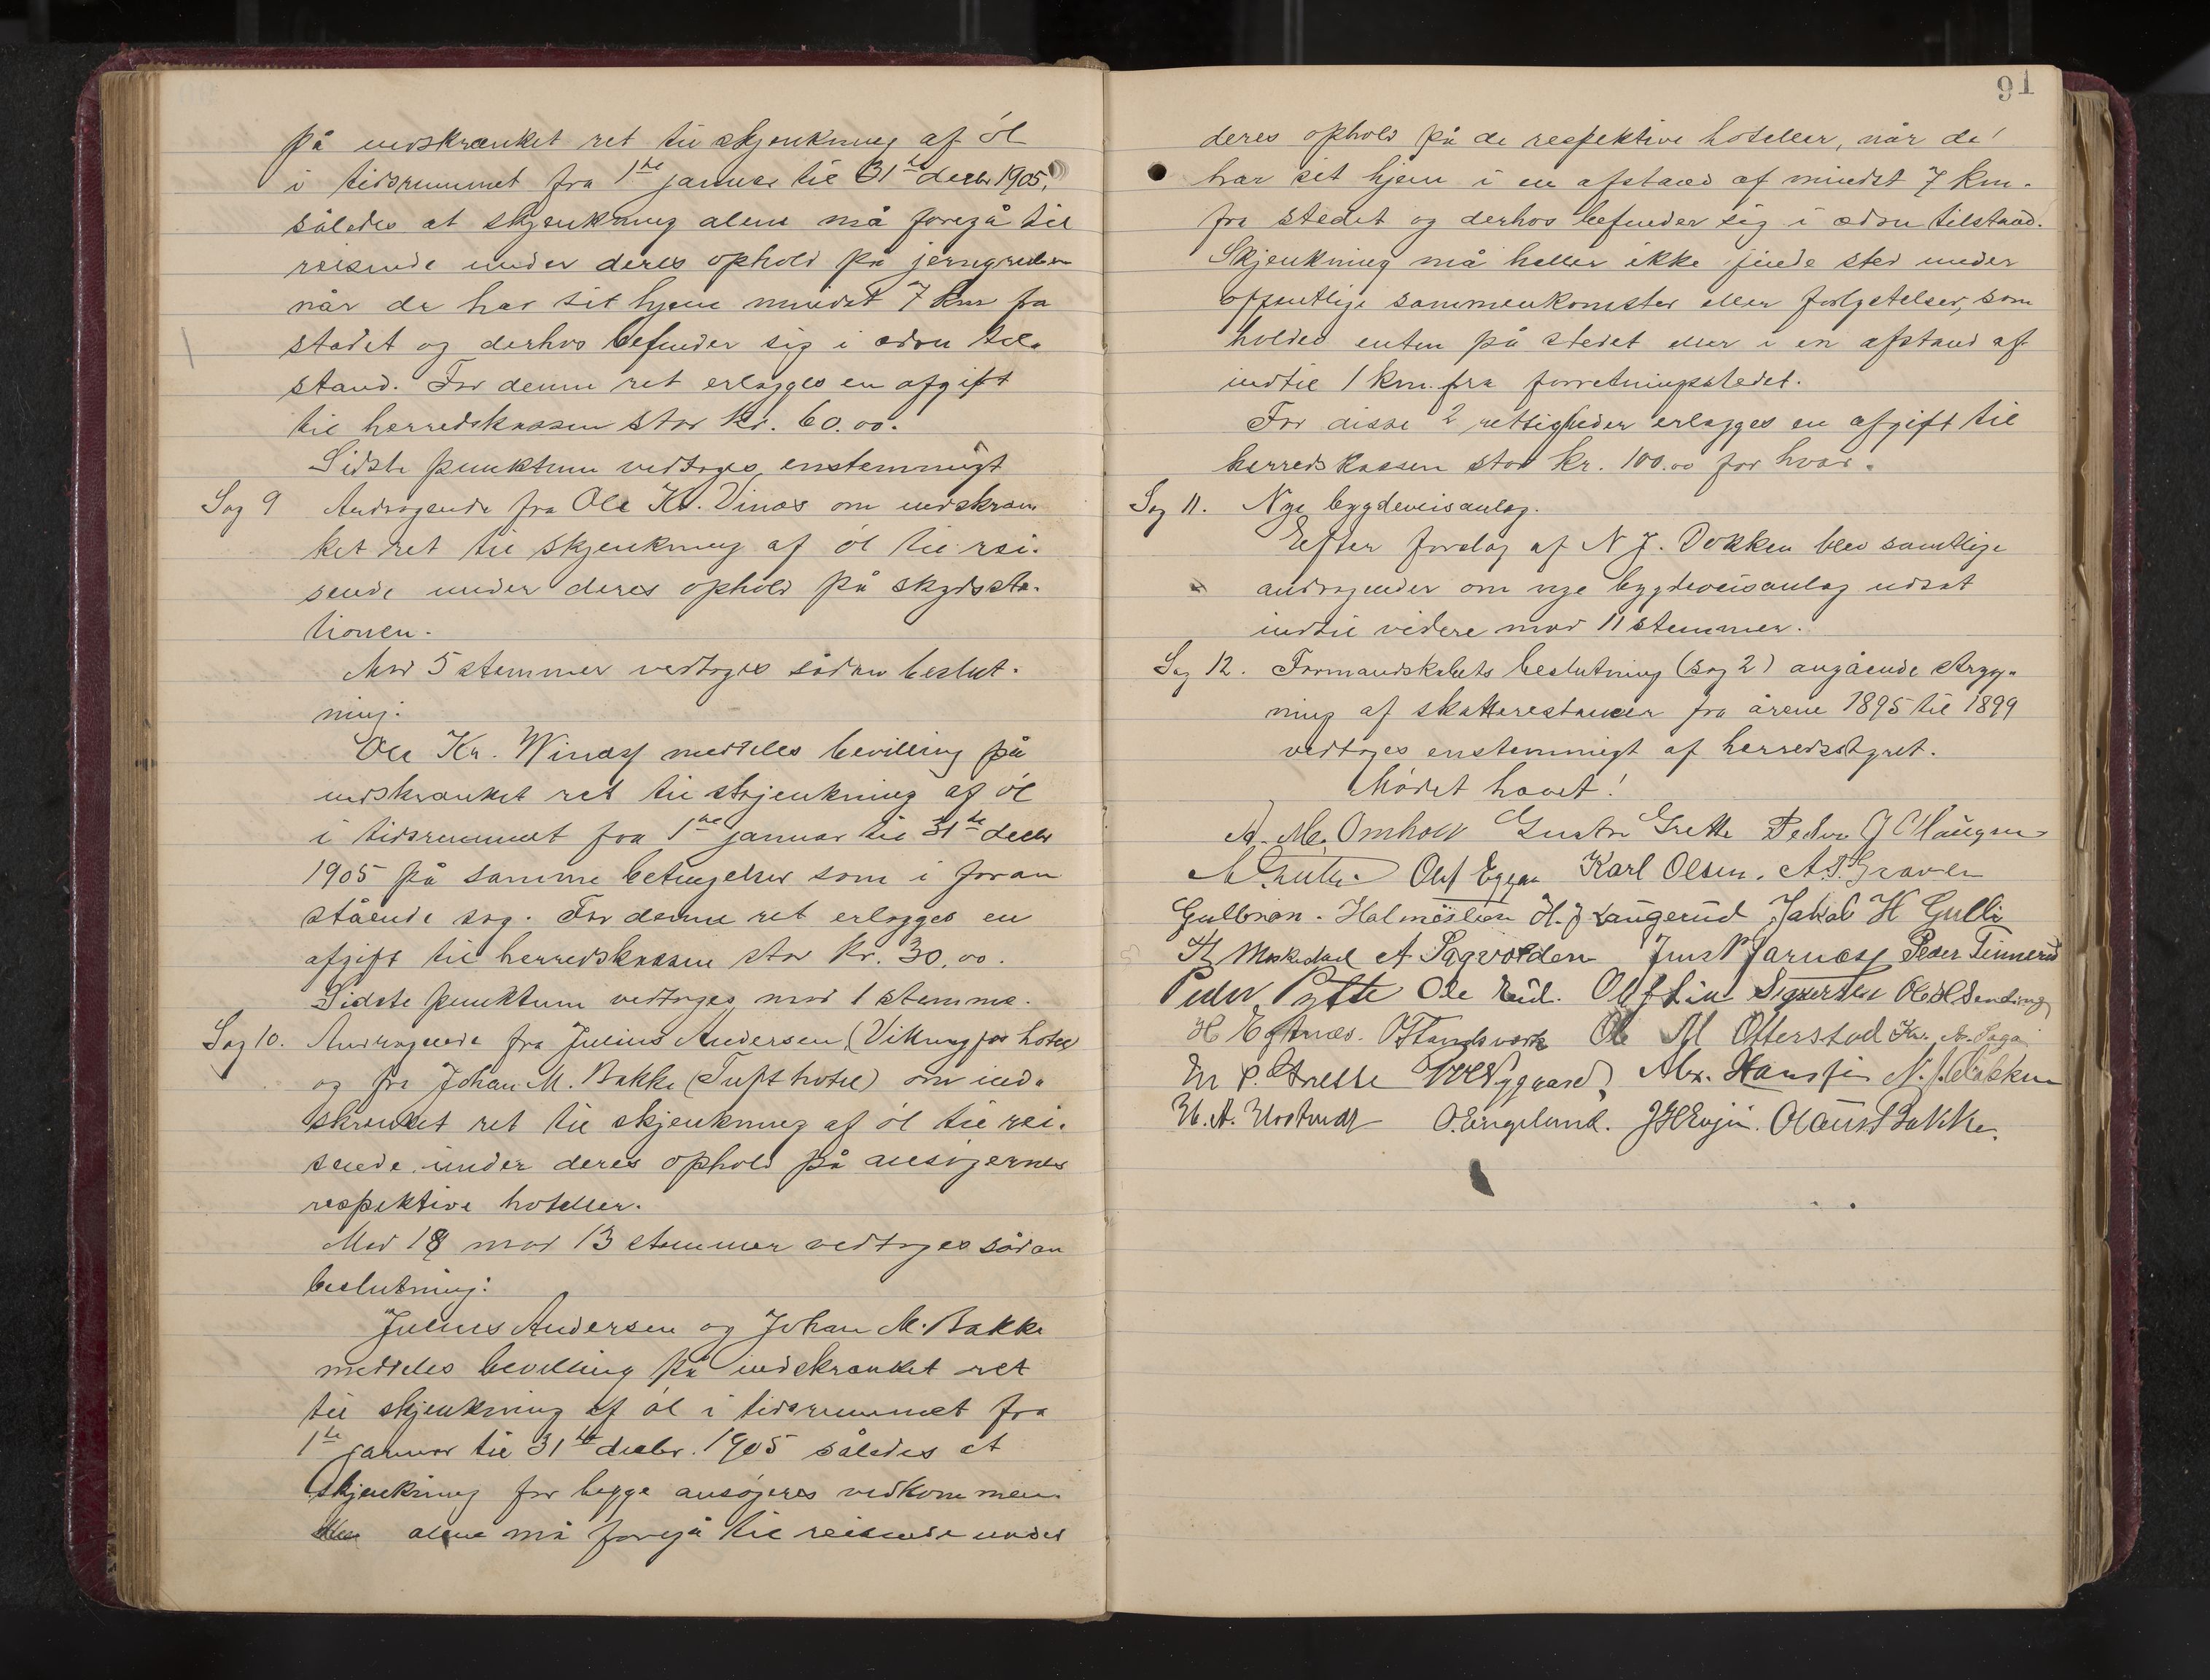 på indskrænket ret til skjenkning af øl
i tidsrummet fra 1ste januar til 31te decbr 1905,
således at skjenkning alene må foregå til
reisende under deres ophold på
når de har sit hjem mindst 7 km fra
stedet og derhos befinder sig i ædru til-
stand. For denne ret erlægges en afgift
til herredskassen stor kr. 60.00.
Sidste punktum vedtoges enstemmigt
Sag 9 Andragende fra Ole Kr. Vinæs om indskræn
ket ret til skjenkning af øl til rei-
sende under deres ophold på skydssta-
tionen.
Mod 5 stemmer vedtoges sådan beslut-
ning:
Ole Kr. Winæs meddeles bevilling på
indskrænket ret til skjenkning af øl
i tidsrummet fra 1ste januar til 31te decbr
1905 på samme betingelser som i foran
stående sag. For denne ret erlægges en
afgift til herredskassen stor kr. 30.00.
Sidste punktum vedtoges mod 1 stemme.
Sag 10. Andragende fra Julius Andersen (Vikingfos hotel)
og fra Johan M. Bakke (Tufthotel) om ind-
skrænket ret til skjenkning af øl til rei-
sende under deres ophold på ansøgernes
respektive hoteller.
Med 18 mod 13 stemmer vedtoges sådan
beslutning:
Julius Andersen og Johan M. Bakke
meddeles bevilling på indskrænket ret
til skjenkning af øl i tidsrummet fra
1ste januar til 31te decbr. 1905 således at
skjenkning for begge ansøgeres vedkommen-
alene må foregå til reisende under
91
deres ophold på de respektive hoteller, når de
har sit hjem i en afstand af mindst 7 km.
fra stedet og derhos befinder sig i ædru tilstand.
Skjenkning må heller ikke finde sted under
offentlige sammenkomster eller forlystelser, som
holdes enten på stedet eller i en afstand af
indtil 1 km. fra forretningsstedet.
For disse 2 rettigheder erlægges en afgift til
herredskassen stor kr. 100.00 for hver.
Sag 11. Nye bygdeveisanlæg.
Efter forslag af N J. Dokken blev samtlige
andragender om nye bygdeveisanlæg udsat
indtil videre mod 11 stemmer.
Sag 12. Formandskabets beslutning (sag 2) angående stryg-
ning af skatterestancer fra årene 1895 til 1899
vedtoges enstemmigt af herredsstyret.
Mødet hævet!
A. M. Omholt Gustav Grette Peder J C Haugan
Olaf Eggen Karl Olsen. A. P. Graven
Gulbran. Halmøslien H. J Laugerud Jakob H Gulli
A Sagvolden Peder Tinnerud
Peder Pytte Ole Rud. Sigvertsen Ole H Sending
Ole M Ofterstad Kr. A. Saga
Er P. Grette Alex. Hansen N. J. Dokken
O. Engelund. J H Evju. Olaus Bakke.